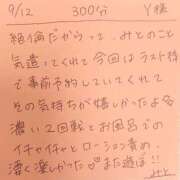 9/12 300分 Y様
絶倫だからって、みとのこと
気遣ってくれて今回はラスト枠
で事前予約していてくれて
その気持ちが嬉しかったよ
濃い2回戦とお風呂での
イチャイチャとローション責め
凄く楽しかった♡また遊ぼ!!
みと